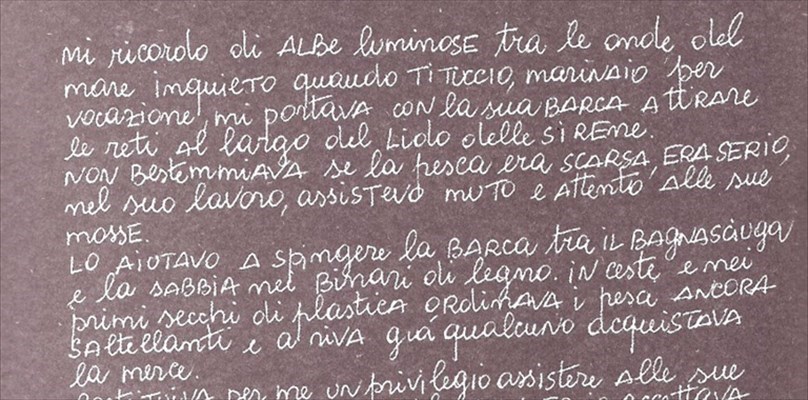 Mi ricordo di ALBe luminoSE tra le onde del
mare inquieTO quando TITUCCIO, marinAIO per
vocazione, mi portAVA con la sua BARCA A tIRARe
le reti Al largo del Lido delle SIREne.
NON BestemmiAVA se la pesca era SCARSA, ERA SERIO,
nel suo lavoro, assiSTEVO MUTO e AttentO Alle sue
mosSE.
LO AIUTAVO A spingere la BARCA tra IL BAgNASCiUgA
e la SABBIA nei Binari di legno. IN ceste e nei
primi secchi di plastica ORdinAVA i pesci ANCORA
SAltellanti e a RIVA già qualcuno acquiSTAVA
la merce.
per me un privilegio assistere alle sue
accettAVA